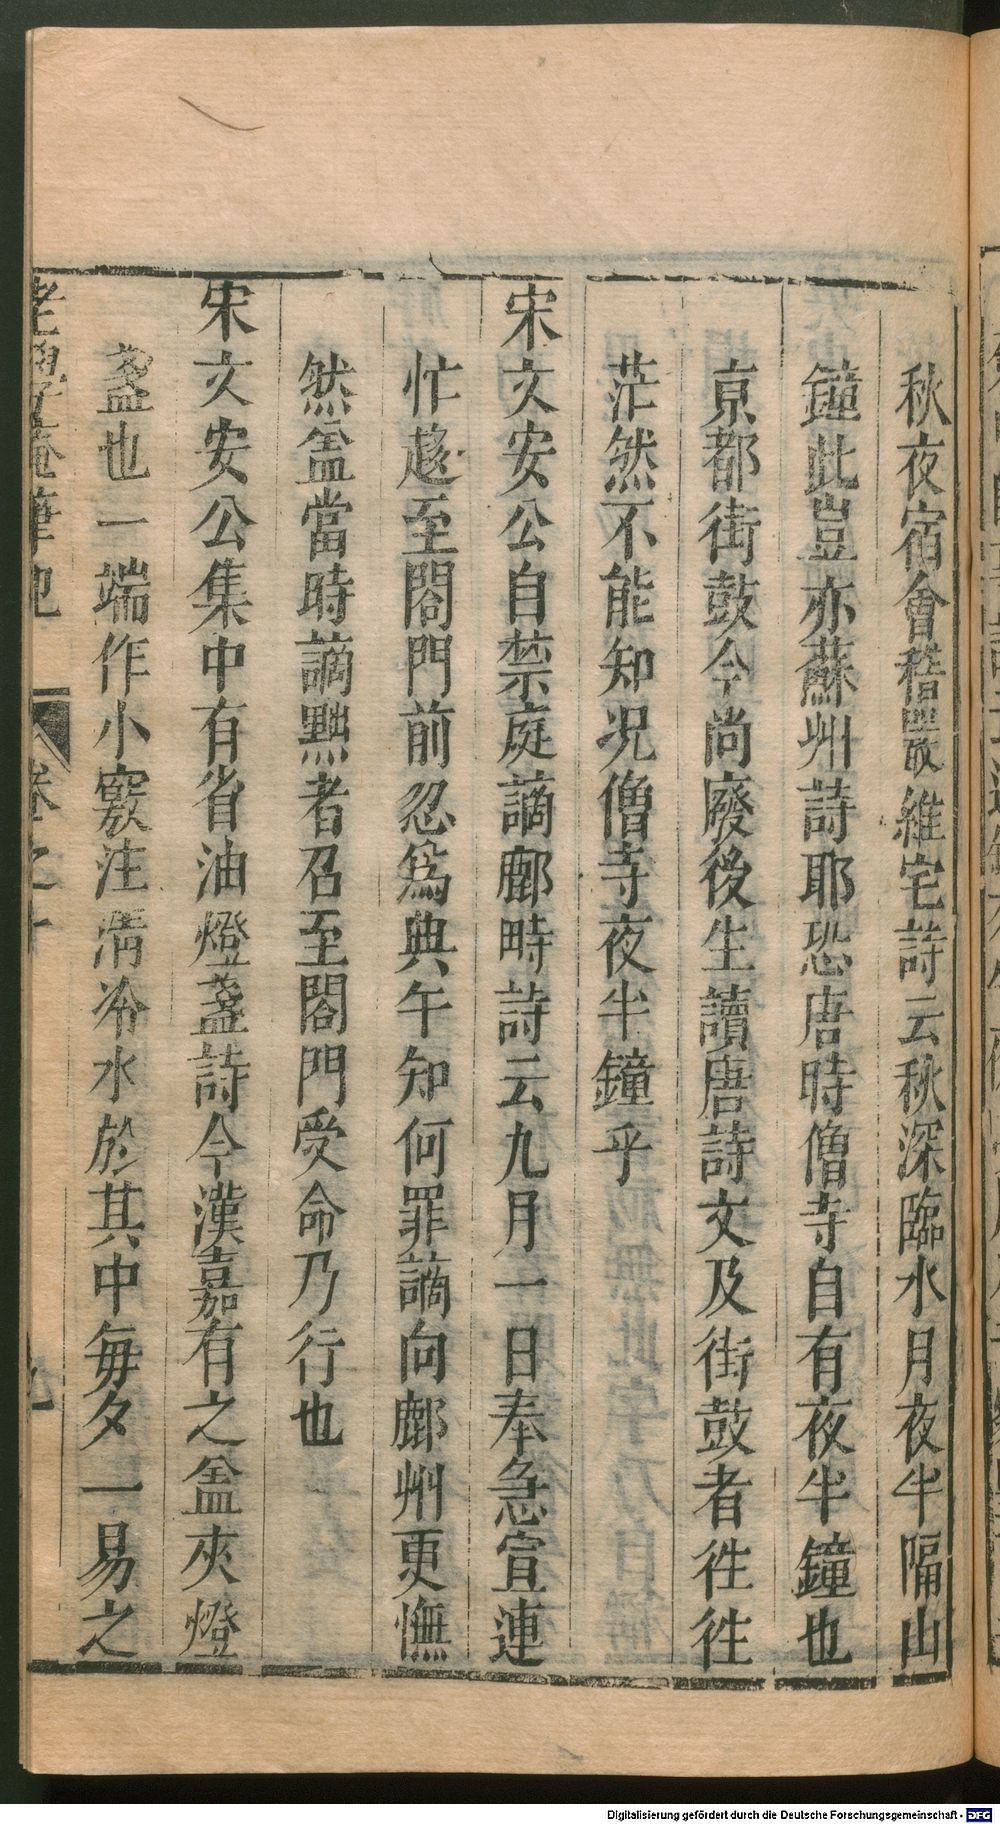 秋夜宿會稽嚴維宅詩云秋深臨水月夜半隔山
鐘此豈亦蘇州詩耶恐唐時僧寺自有夜半鐘也
京都街鼓今尚廢後生讀唐詩文及街鼓者徃徃
茫然不能知况僧寺夜半鐘乎
宋文安公自禁庭謫鄜畤詩云九月一日奉急宣連
忙趍至閤門前忍爲典午知何罪謫向鄜州更憮
然盖當時謫黜者召至閤門受命乃行也
宋文安公集中有省油燈盞詩今漢嘉有之盖夾燈
盞也一端作小竅注清冷水於其中每夕一易之
老學庵筆記 卷之十 九
Digitalisierung gefördert durch die Deutsche Forschungsgemeinschaft - DFG